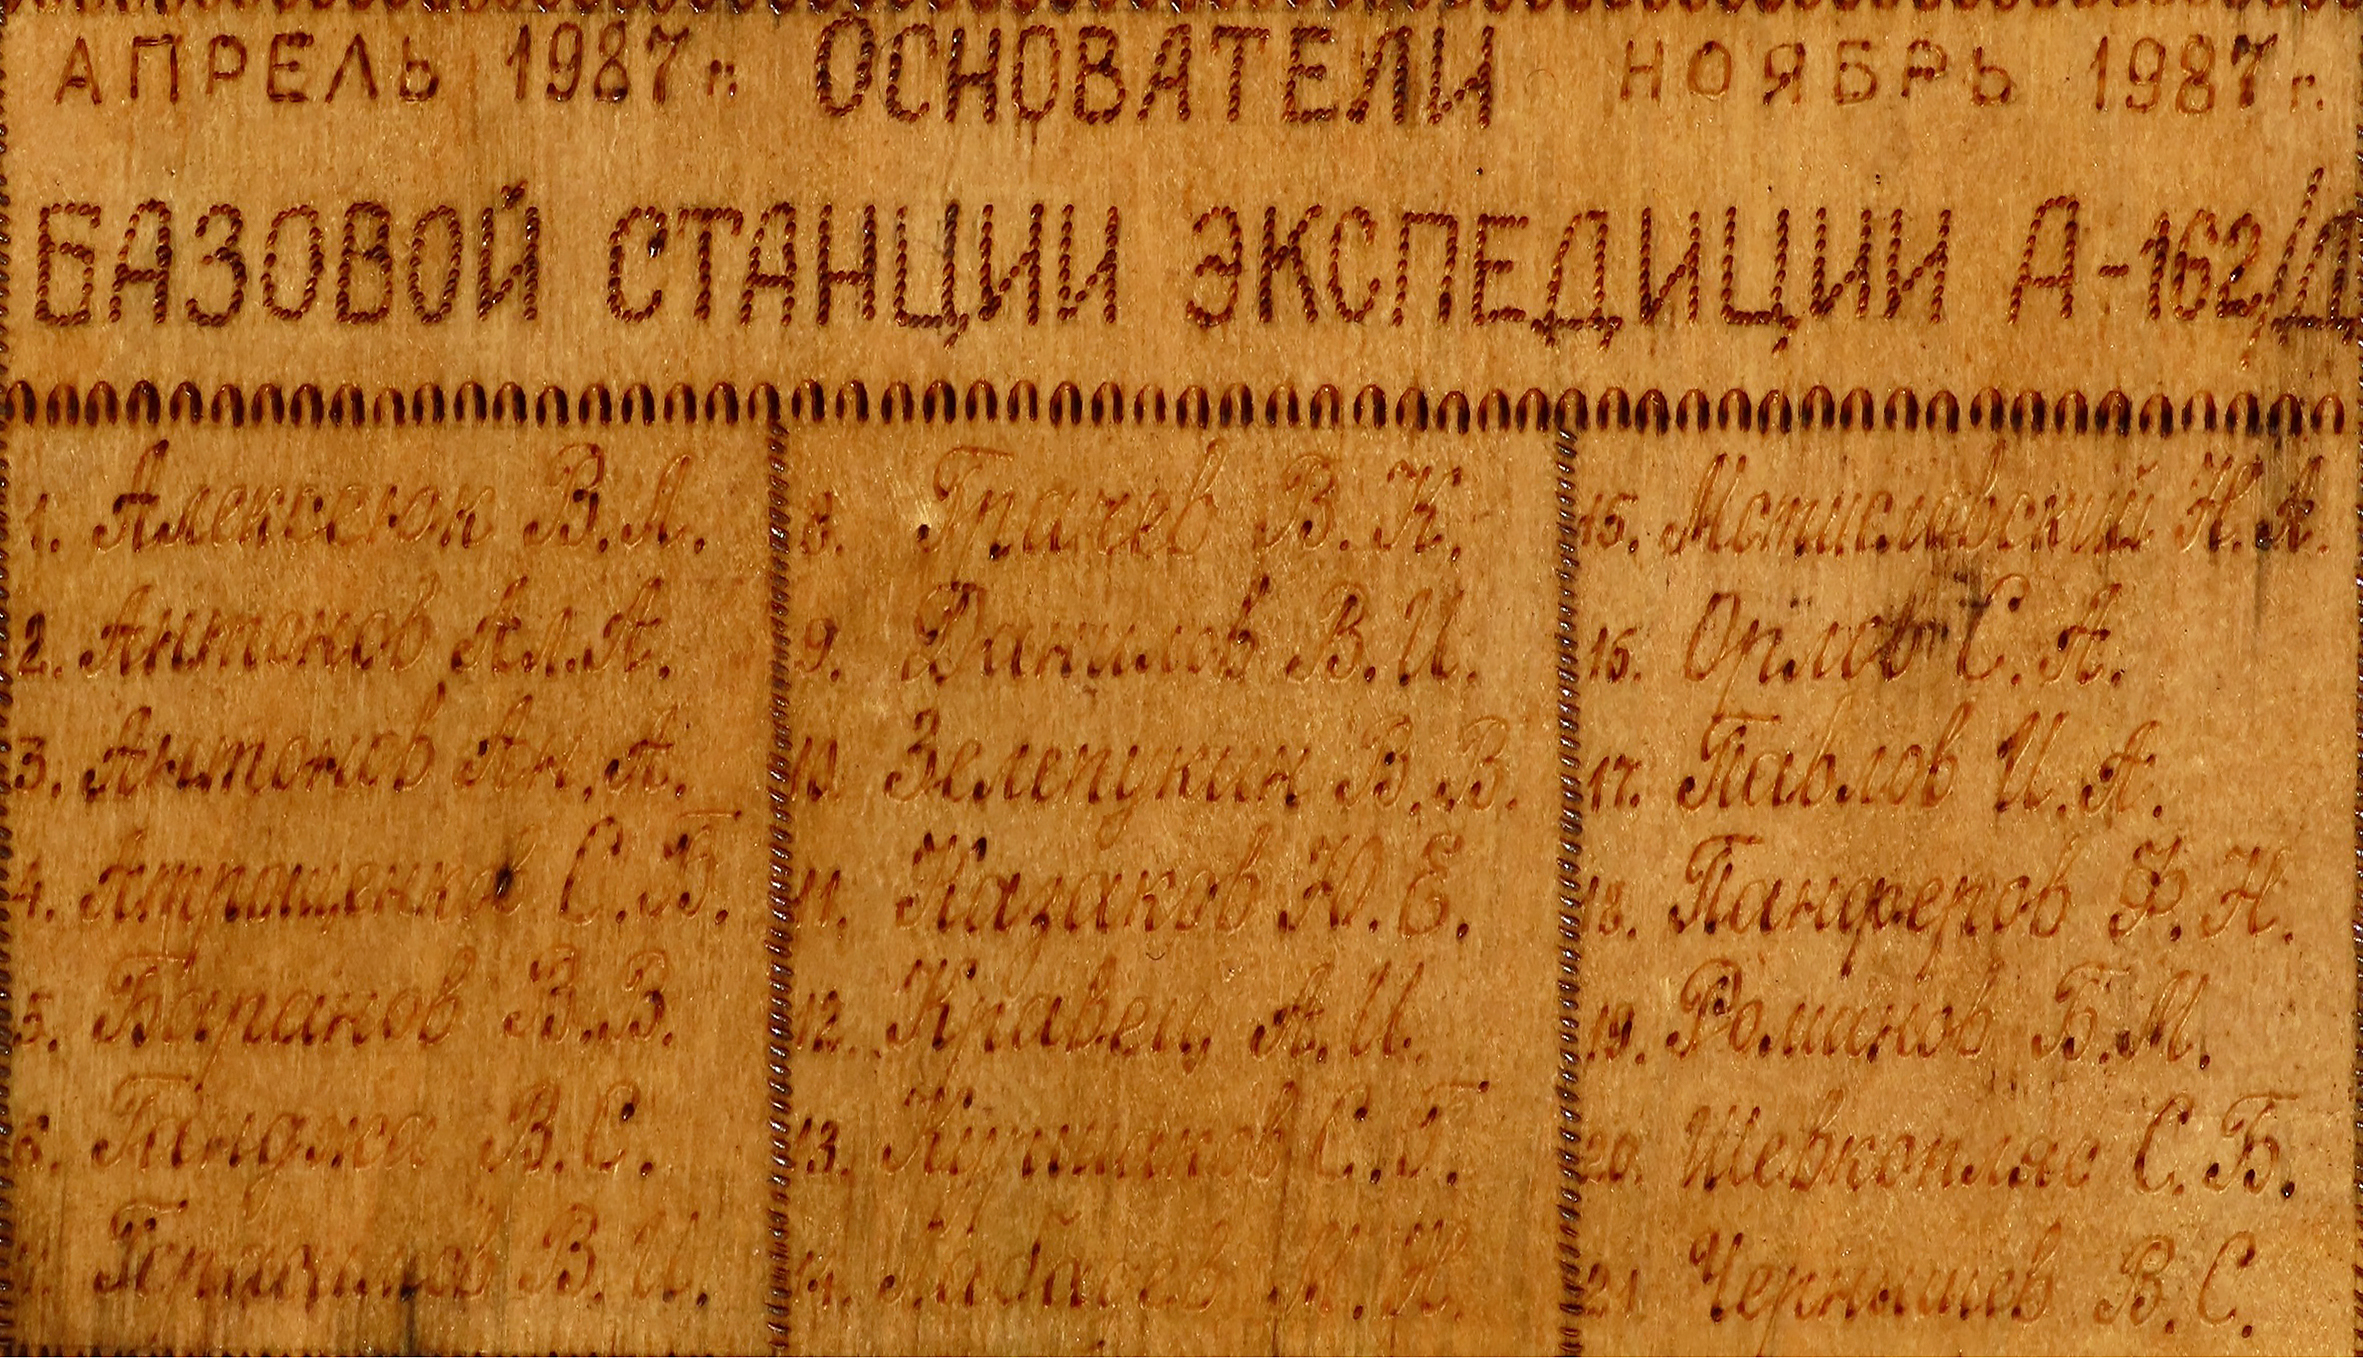 АПРЕЛЬ 1987 г. ОСНОВАТЕЛИ НОЯБРЬ 1987 г.
БАЗОВОЙ СТАНЦИИ ЭКСПЕДИЦИИ А-162/Д
1. Алексеюк В.А.
2. Антонов Ал.А.
3. Антонов Ан.А.
4. Атрашенков С.Б.
5. Баранов В.В.
6. Ганджа В.С.
7. В.И.
8. Грачев В.К.
9. Данилов В.И.
10 Зелепукин В.В.
11. Казаков Ю.Е.
12. Кравец А.И.
13. С.Г.
14. М.Н.
15. Мстиславский Н.А.
16. Орлов С.А.
17. Павлов И.А.
18. Панферов Ф.Н.
19. Романов Б.М.
20. Шевкопляс С.Б.
21 Чернышев В.С.